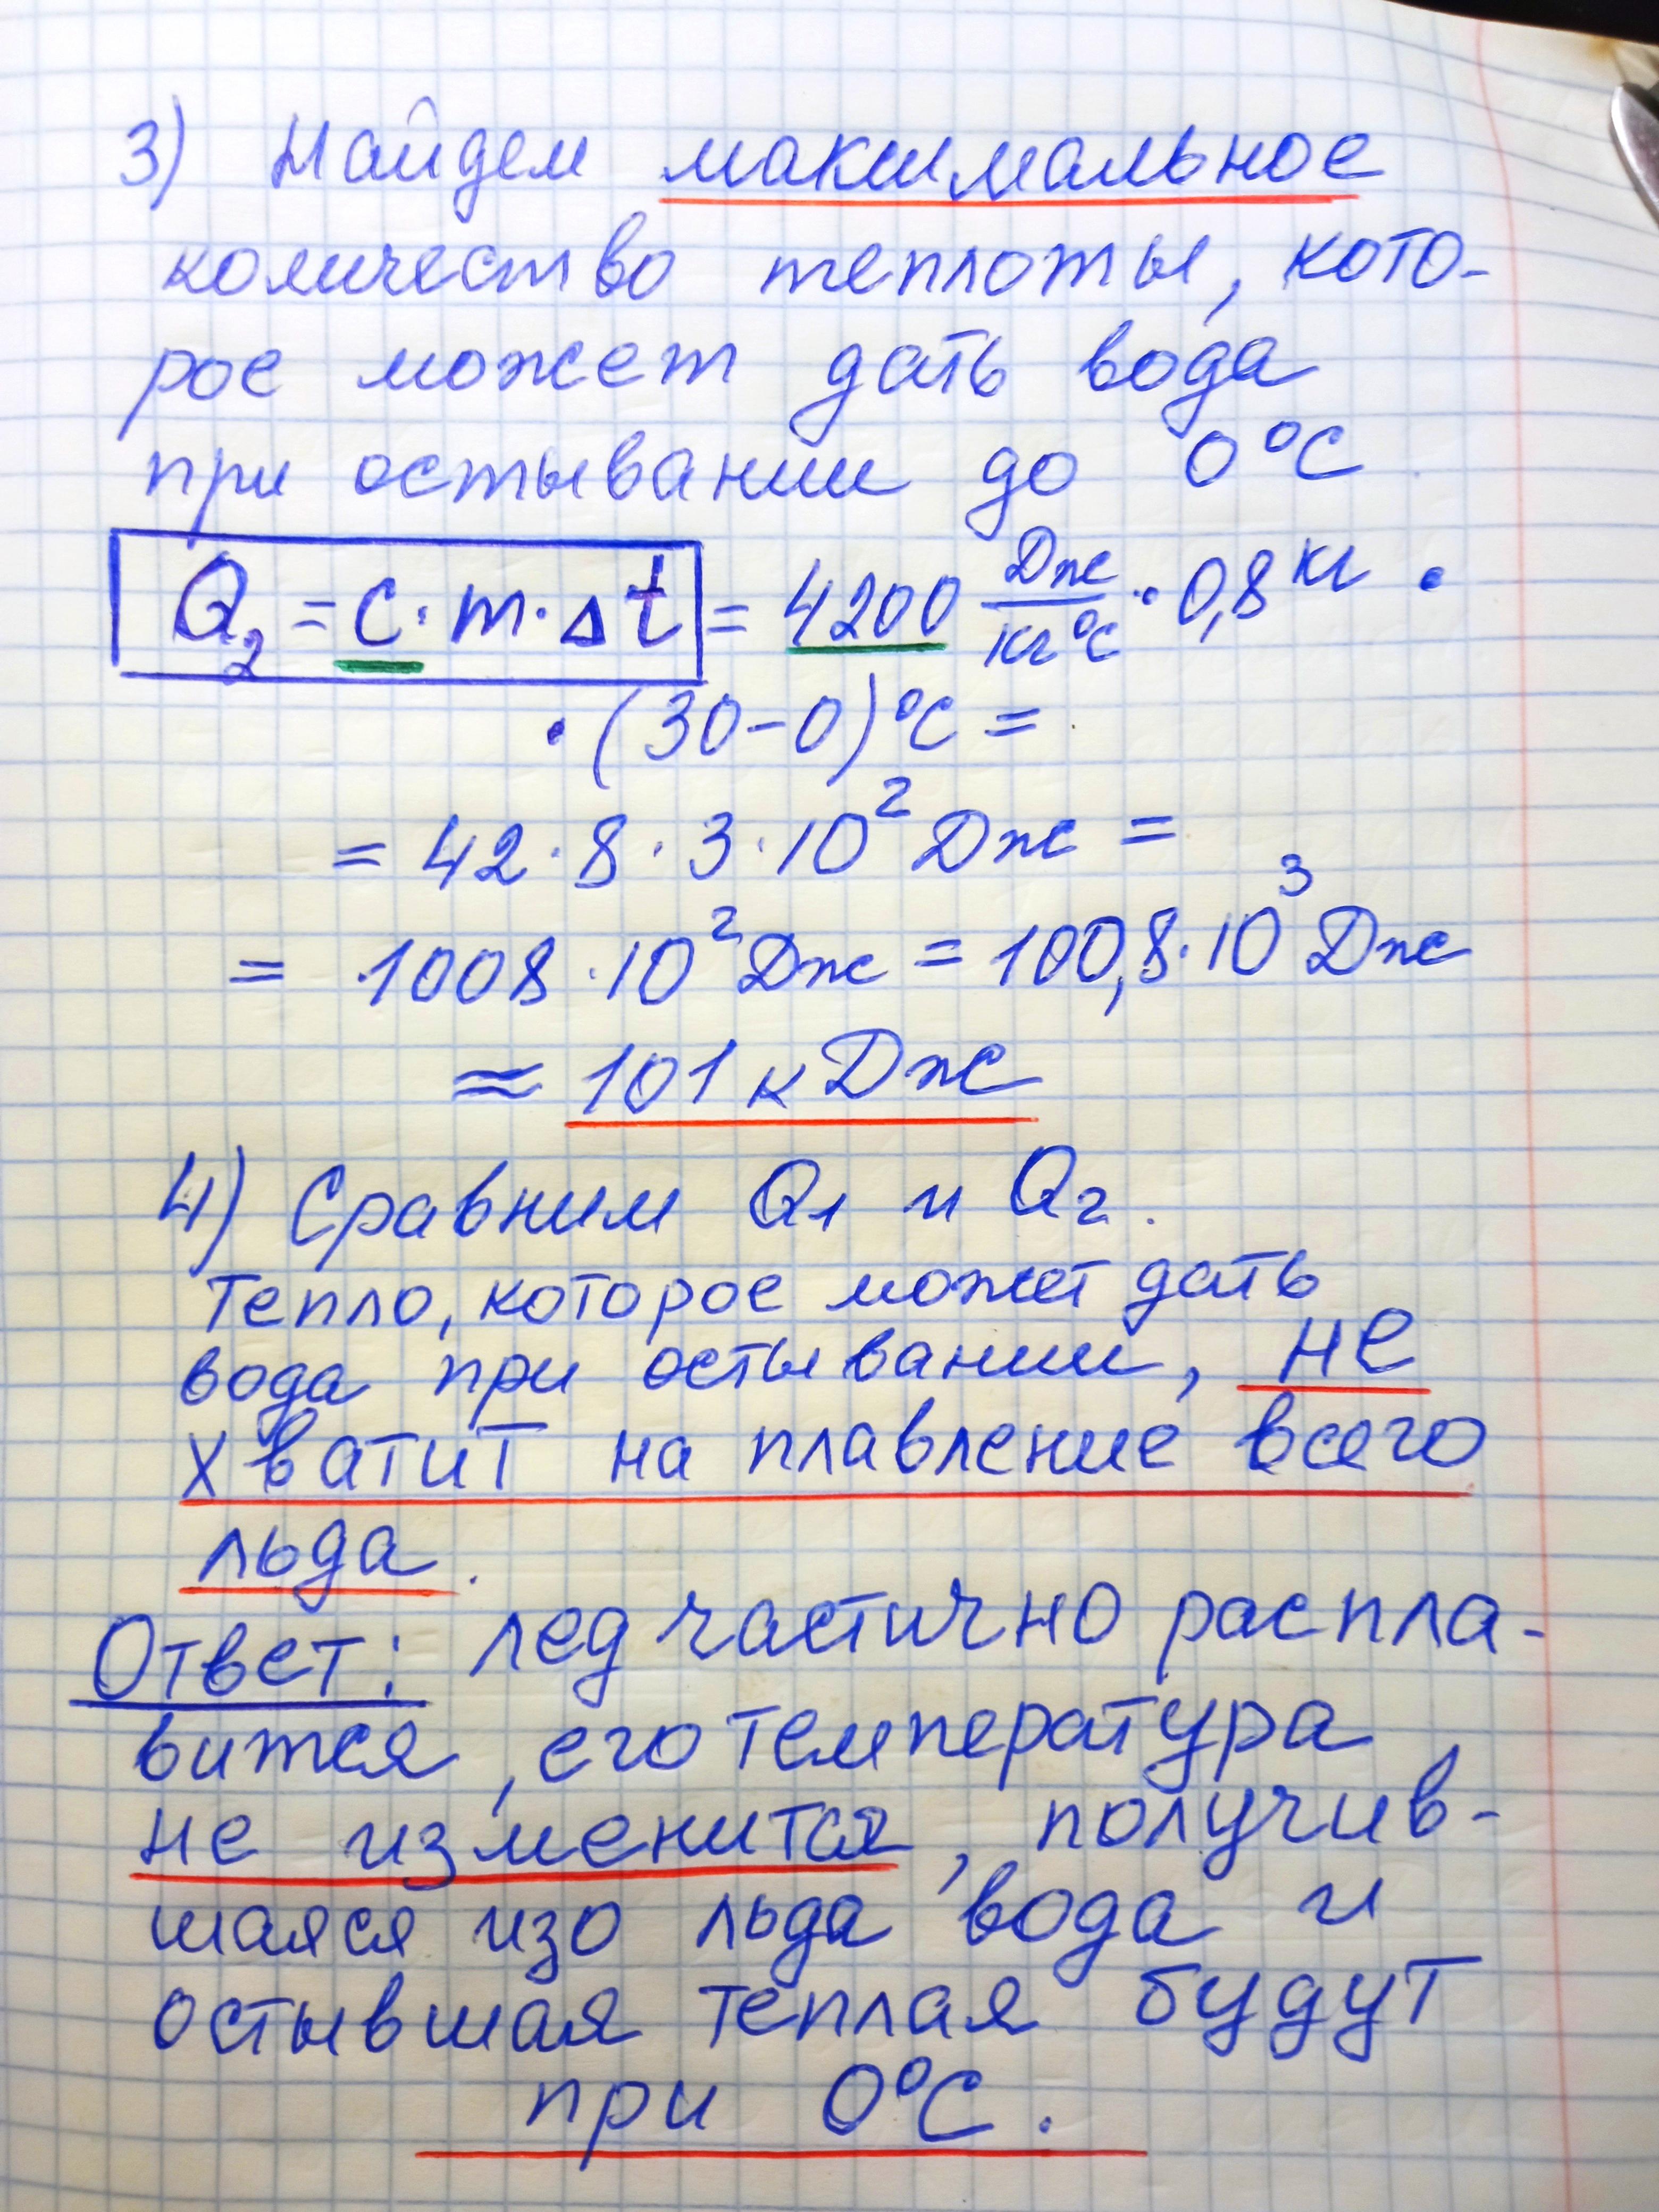 3) Найдем максимальное
количество теплоты, кото-
рое может дать вода
при остывании до 0°С
Q₂ = c · m · Δt = 4200 Дж/кг°С · 0,8 кг ·
· (30-0)°С =
= 42 · 8 · 3 · 10² Дж =
= 1008 · 10² Дж = 100,8 · 10³ Дж
≈ 101 кДж
4) Сравним Q₁ и Q₂.
Тепло, которое может дать
вода при остывании, не
хватит на плавление всего
льда.
Ответ: лед частично распла-
вится, его температура
не изменится, получив-
шаяся изо льда вода и
остывшая теплая будут
при 0°С.